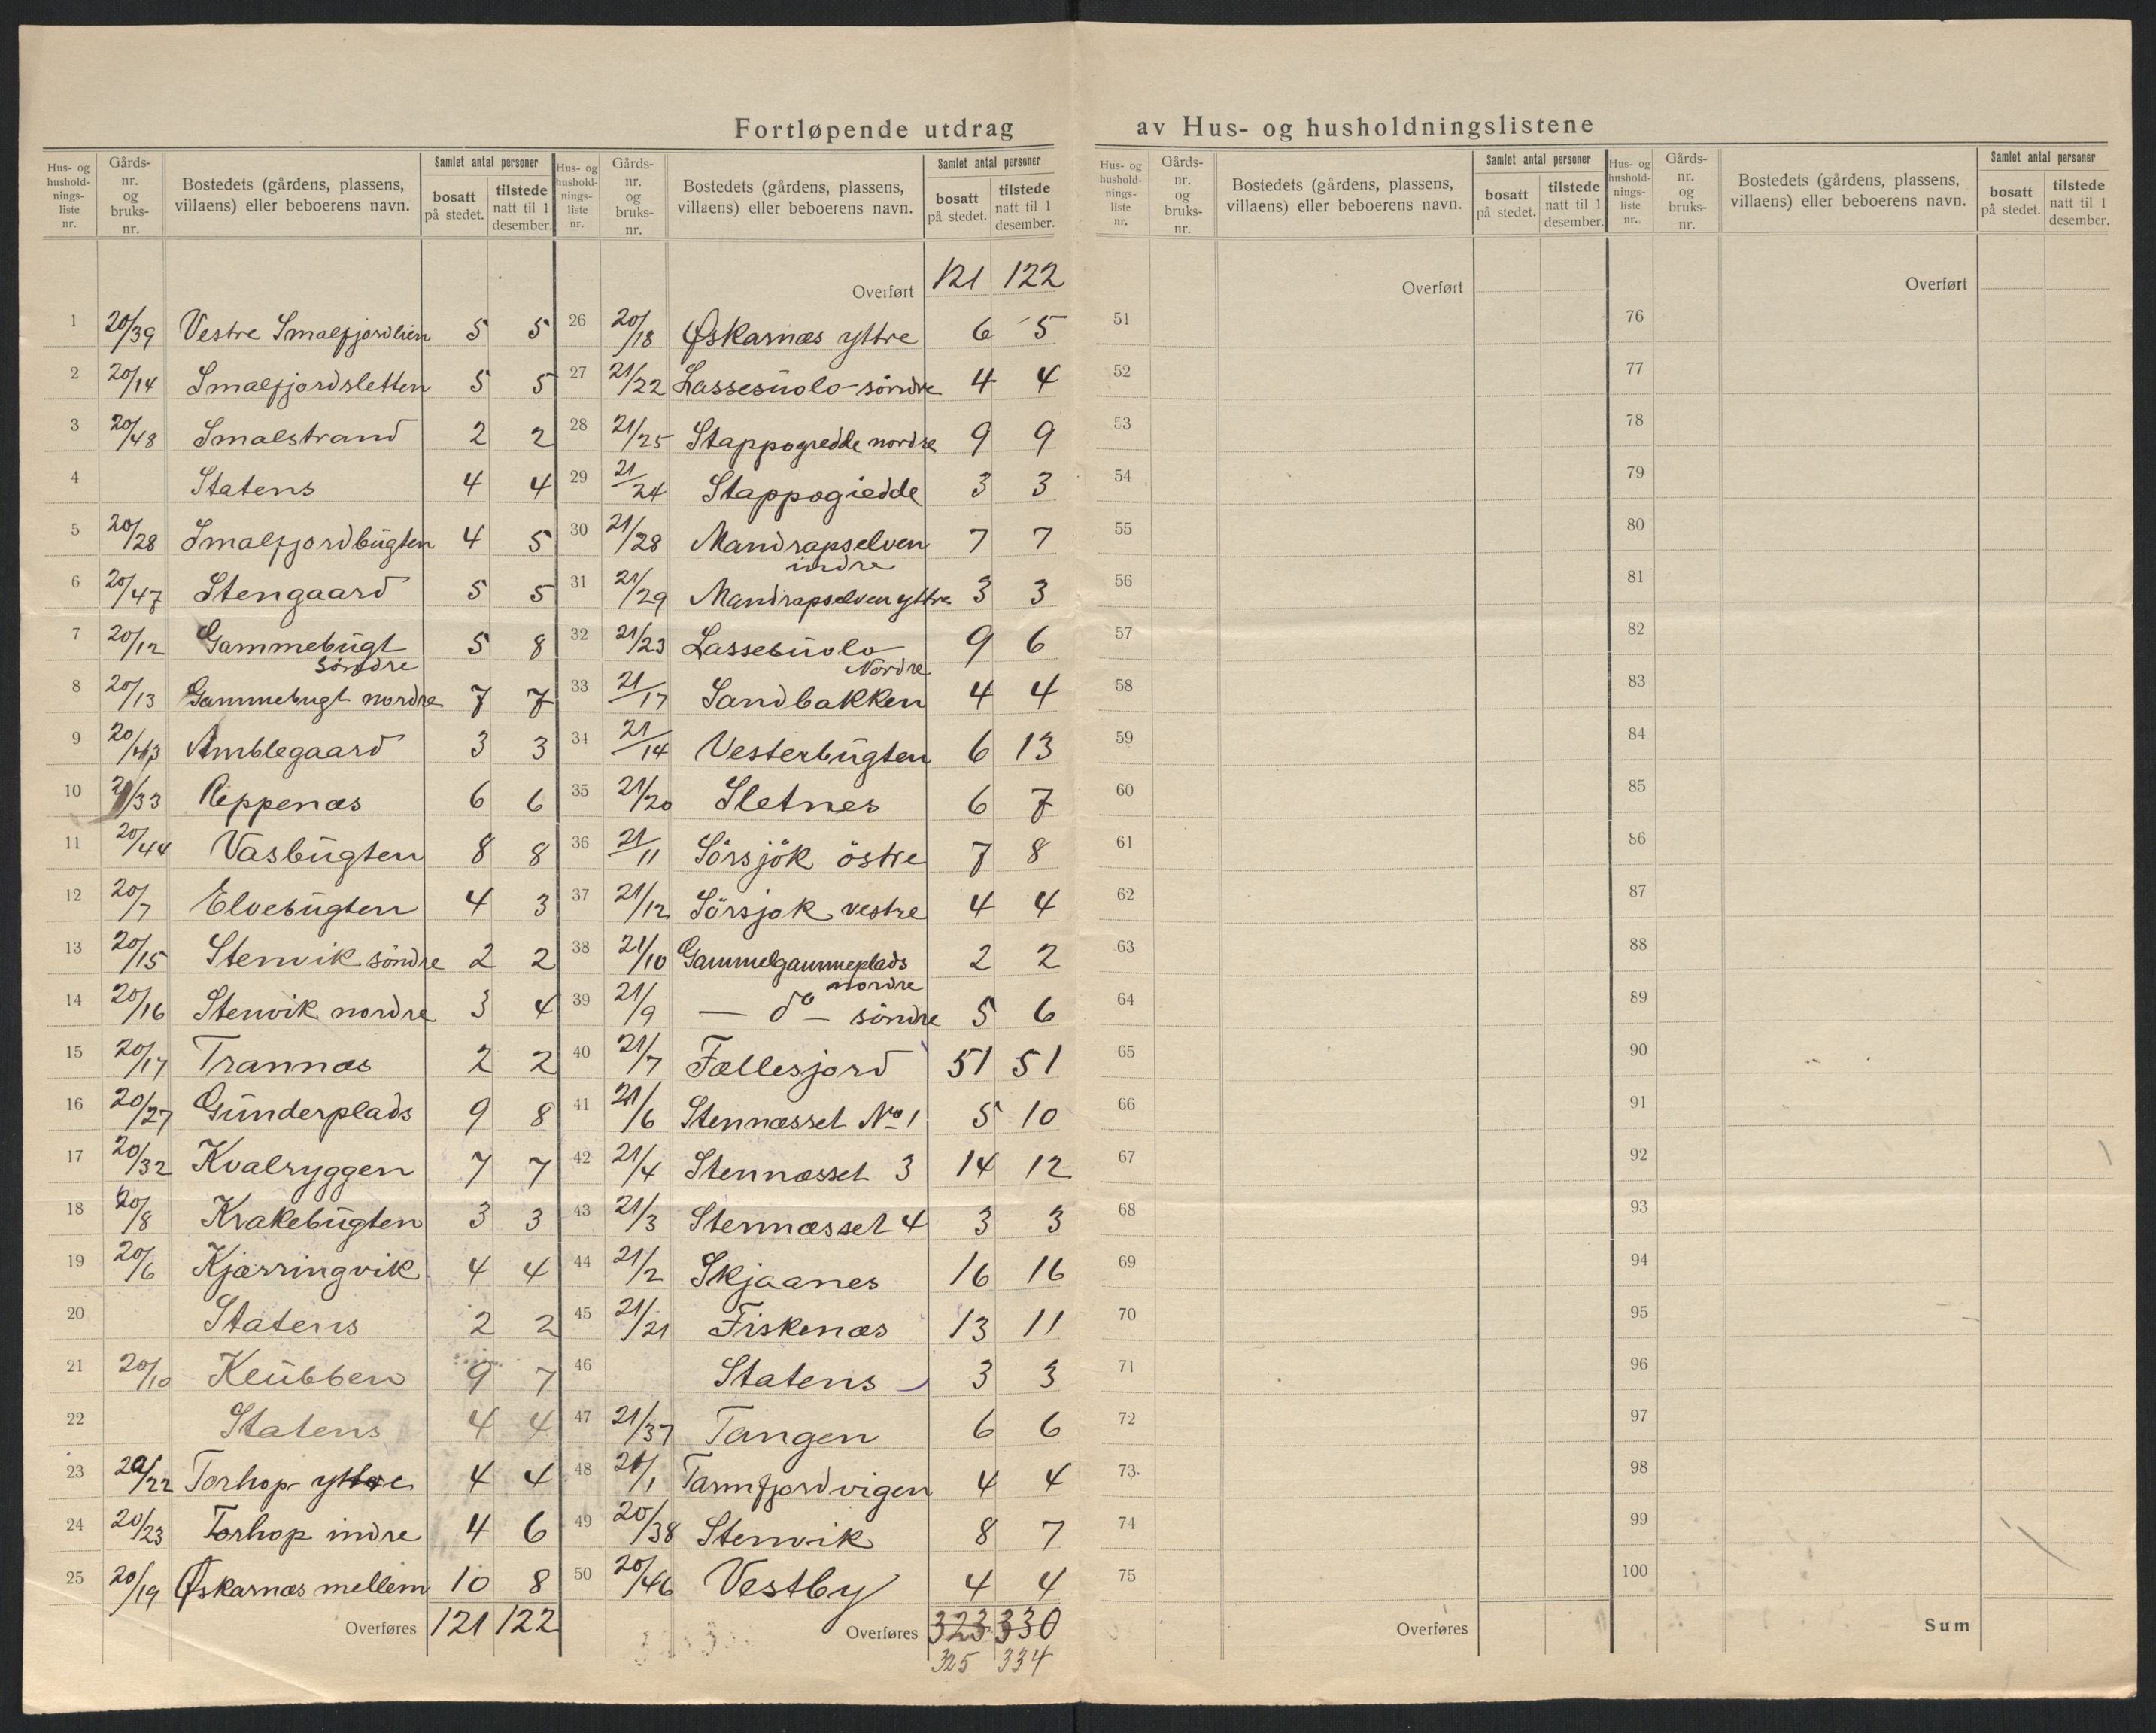 Fortløpende utdrag av Hus- og husholdningslistene
Hus- og husholdnings-liste nr. | Gårds-nr. og bruks-nr. | Bostedets (gårdens, plassens, villaens) eller beboerens navn. | Samlet antal personer: bosatt på stedet. | tilstede natt til 1 desember.
1 20/39 Vestre Smalfjordlien 5 5
2 20/14 Smalfjordsletten 5 5
3 20/48 Smalstrand 2 2
4 Statens 4 4
5 20/28 Smalfjordbugten 4 5
6 20/47 Stengaard 5 5
7 20/12 Gammebugt søndre 5 8
8 20/13 Gammebugt nordre 7 7
9 20/43 Amblegaard 3 3
10 21/33 Reppenæs 6 6
11 20/44 Vasbugten 8 8
12 20/7 Elvebugten 4 3
13 20/15 Stenvik söndre 2 2
14 20/16 Stenvik nordre 3 4
15 20/17 Trannæs 2 2
16 20/27 Gunderplads 9 8
17 20/32 Kvalryggen 7 7
18 20/8 Krakebugten 3 3
19 20/6 Kjærringvik 4 4
20 Statens 2 2
21 20/10 Klubben 9 7
22 Statens 4 4
23 20/22 Torhop yttre 4 4
24 20/23 Torhop indre 4 6
25 20/19 Øskarnæs mellem 10 8
Overføres 121 122
Hus- og husholdnings-liste nr. | Gårds-nr. og bruks-nr. | Bostedets (gårdens, plassens, villaens) eller beboerens navn. | Samlet antal personer: bosatt på stedet. | tilstede natt til 1 desember.
Overført 121 122
26 20/18 Øskarnæs yttre 6 5
27 21/22 Lassesuolo-söndre 4 4
28 21/25 Stappogiedde nordre 9 9
29 21/24 Stappogiedde 3 3
30 21/28 Mandrapselven indre 7 7
31 21/29 Mandrapselven yttre 3 3
32 21/23 Lassesuolo Nordre 9 6
33 21/17 Sandbakken 4 4
34 21/14 Vesterbugten 6 13
35 21/20 Sletnes 6 7
36 21/11 Sörsjök östre 7 8
37 21/12 Sörsjok vestre 4 4
38 21/10 Gammelgammeplads nordre 2 2
39 21/9 — do — söndre 5 6
40 21/7 Fællesjord 51 51
41 21/6 Stennæsset No 1 5 10
42 21/4 Stennæsset 3 14 12
43 21/3 Stennæsset 4 3 3
44 21/2 Skjaanes 16 16
45 21/21 Fiskenæs 13 11
46 Statens 3 3
47 21/37 Tangen 6 6
48 21/1 Tarmfjordvigen 4 4
49 20/38 Stenvik 8 7
50 20/46 Vestby 4 4
Overføres 323 330
325 334
Hus- og husholdnings-liste nr. | Gårds-nr. og bruks-nr. | Bostedets (gårdens, plassens, villaens) eller beboerens navn. | Samlet antal personer: bosatt på stedet. | tilstede natt til 1 desember.
Overført
51
52
53
54
55
56
57
58
59
60
61
62
63
64
65
66
67
68
69
70
71
72
73
74
75
Overføres
Hus- og husholdnings-liste nr. | Gårds-nr. og bruks-nr. | Bostedets (gårdens, plassens, villaens) eller beboerens navn. | Samlet antal personer: bosatt på stedet. | tilstede natt til 1 desember.
Overført
76
77
78
79
80
81
82
83
84
85
86
87
88
89
90
91
92
93
94
95
96
97
98
99
100
Sum